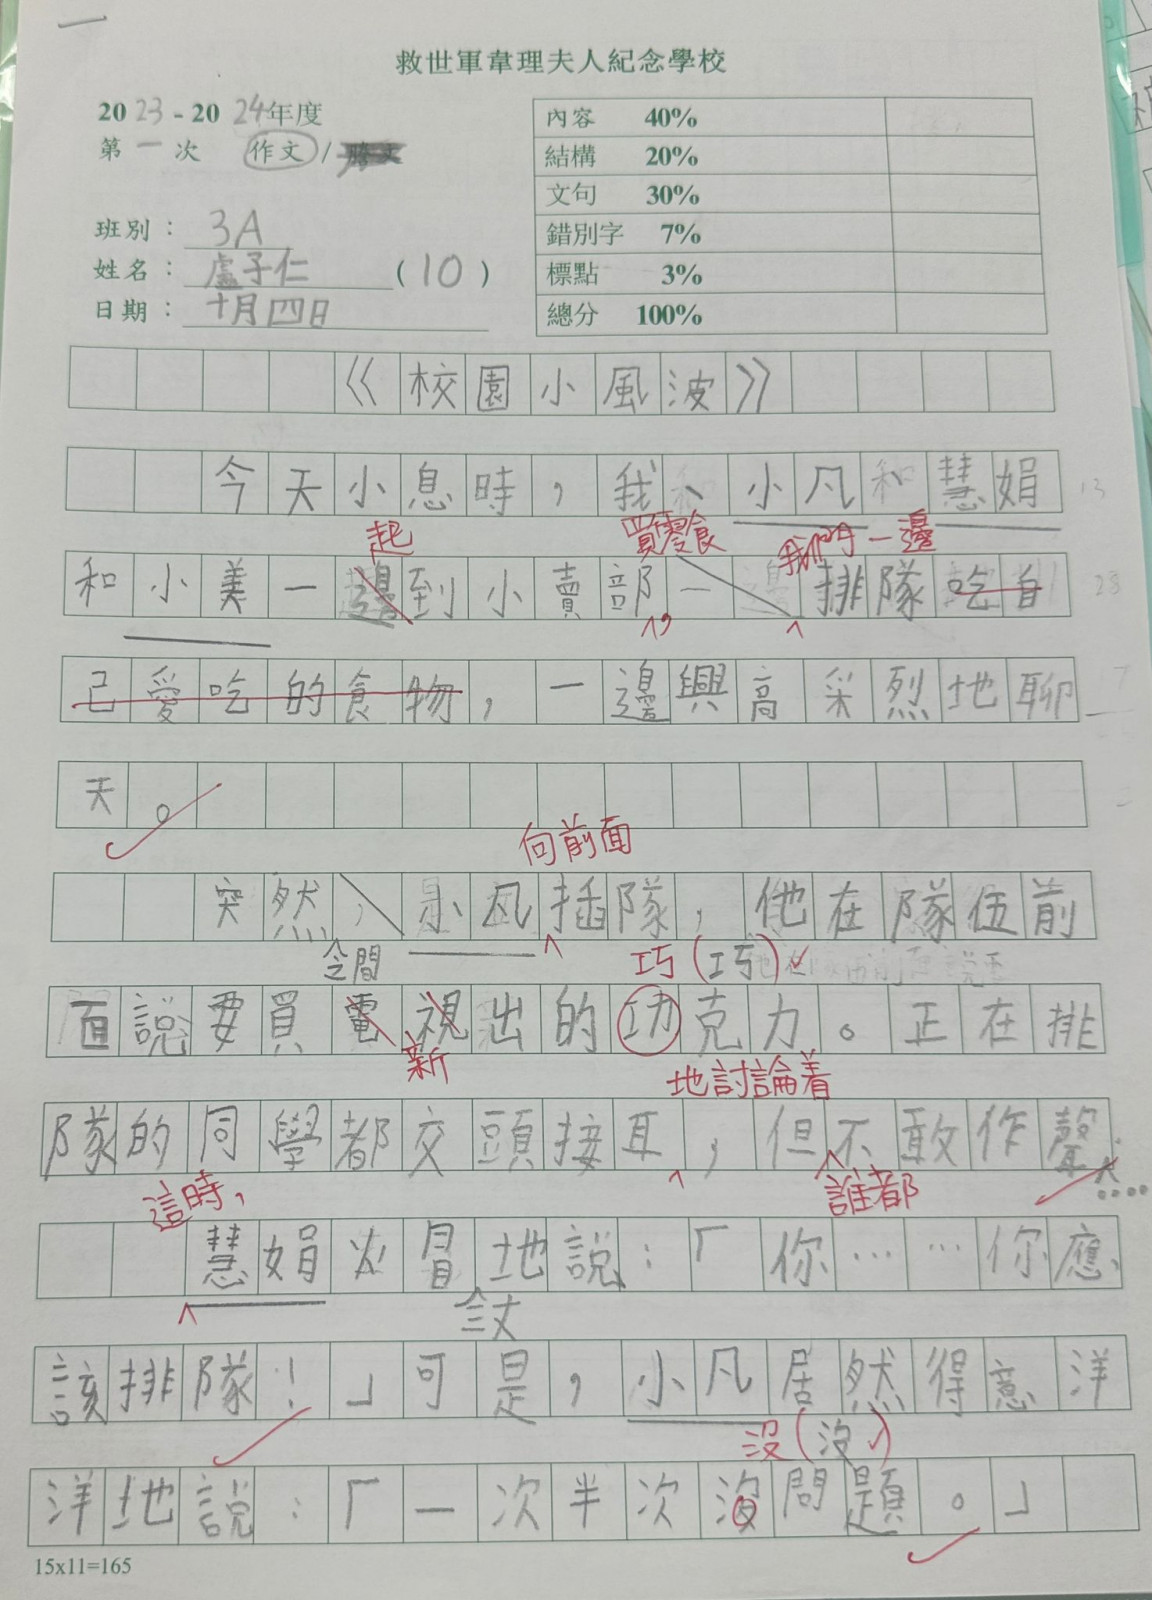 救世軍韋理夫人紀念學校
2023-2024年度
第一次 作文/
班別：3A
姓名：盧子仁 (10)
日期：十月四日
內容 40%
結構 20%
文句 30%
錯別字 7%
標點 3%
總分 100%
《校園小風波》
今天小息時，我、小凡和慧娟
起 買零食 我們一邊
和小美一邊到小賣部一邊排隊吃自
，
己愛吃的食物，一邊興高采烈地聊
天。
向前面
突然，小凡插隊，他在隊伍前
巧(巧)
面說要買電視出的功克力。正在排
新 地討論着
隊的同學都交頭接耳，但不敢作聲……
這時， 誰都
慧娟火冒地說：「你……你應
三丈
該排隊！」可是，小凡居然得意洋
沒(沒)
洋地說：「一次半次沒問題。」
15x11=165